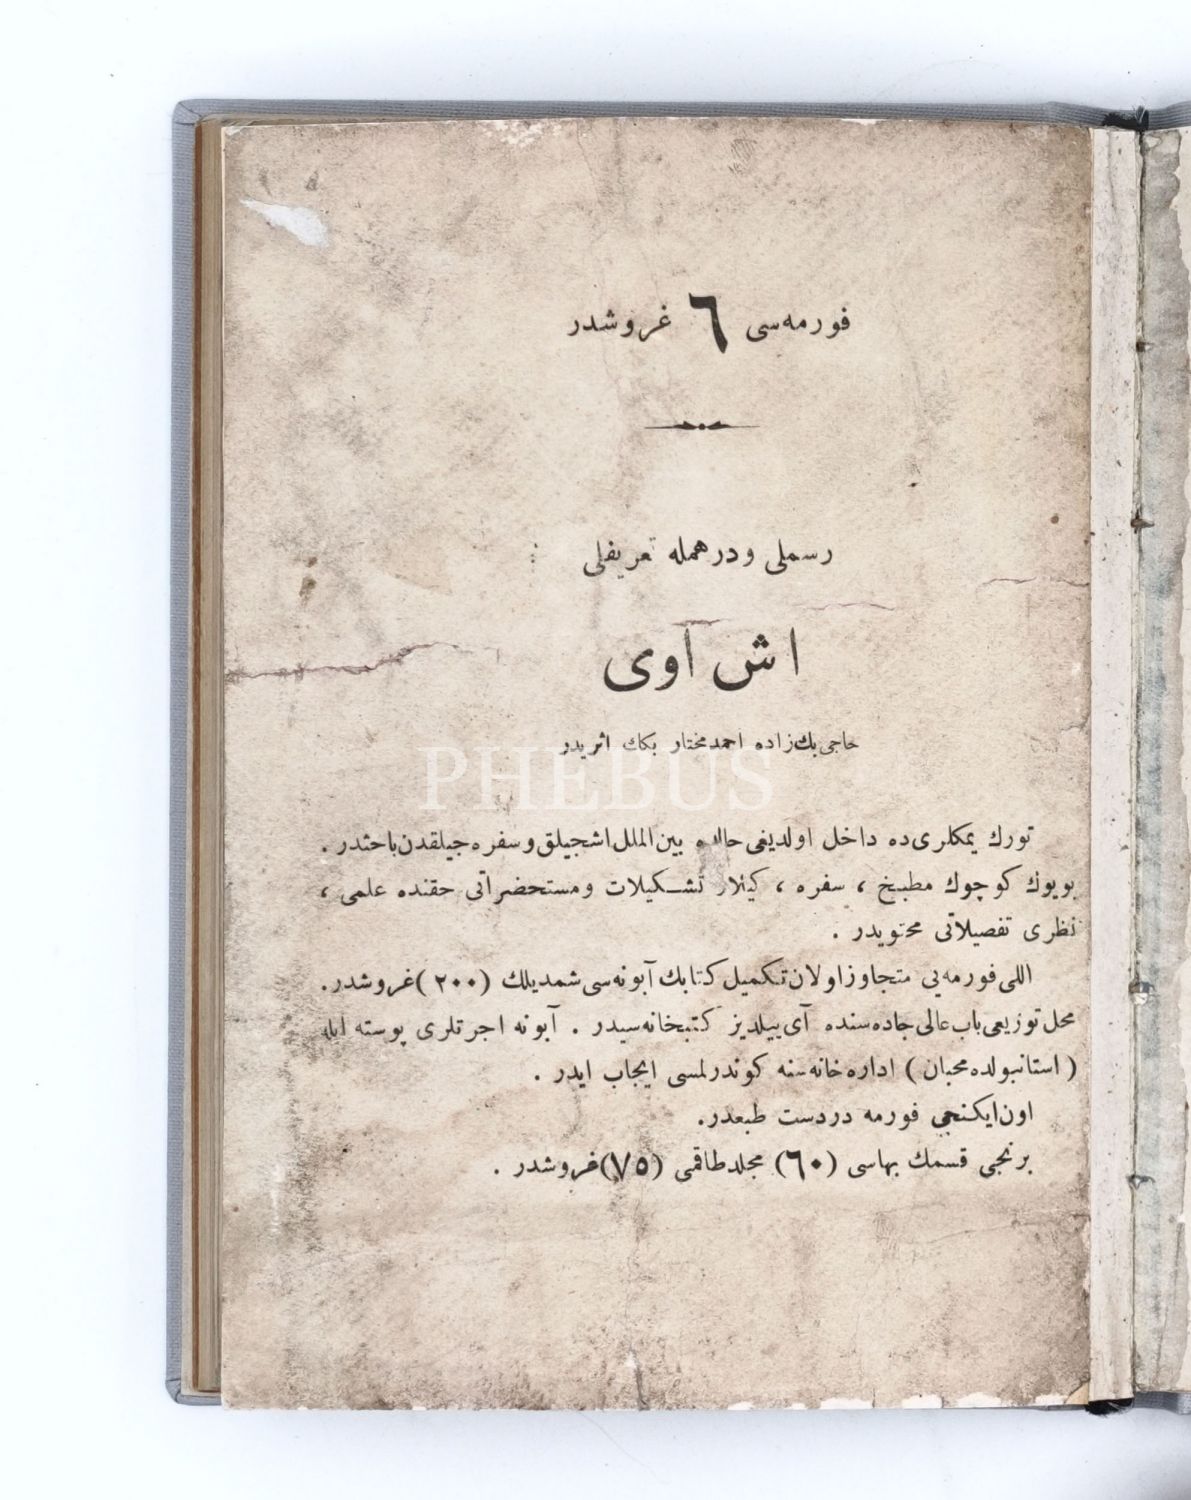 فورمه‌سی ٦ غروشدر
رسملی ودرهمله تعریفلی :
اش اوی
حاجی بك‌زاده احمد مختار بكك اثریدر
PHEBUS
تورك یمكلری‌ده داخل اولدیغی حالده بین‌الملل اشجیلق و سفره‌جیلقدن باحثدر .
بویوك كوچوك مطبخ ، سفره ، كیلار تشكیلات ومستحضراتی حقنده علمی ،
نظری تفصیلاتی محتویدر .
اللی فورمه‌یی متجاوز اولان تكمیل كتابك آبونه‌سی شمدیلك (٢٠٠) غروشدر.
محل توزیعی باب عالی جاده‌سنده آی ییلدیز كتبخانه‌سیدر . آبونه اجرتلری پوسته ایله
( استانبولده محبان ) اداره‌خانه‌سنه كوندرلمسی ایجاب ایدر .
اون ایكنجی فورمه دردست طبعدر.
برنجی قسمك بهاسی (٦٠) مجلد طاقمی (٧٥) غروشدر .